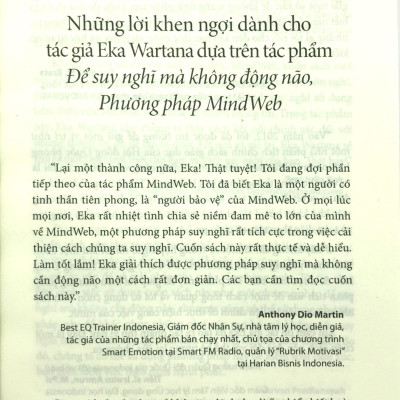 Những lời khen ngợi dành cho
tác giả Eka Wartana dựa trên tác phẩm
Để suy nghĩ mà không động não,
Phương pháp MindWeb
"Lại một thành công nữa, Eka! Thật tuyệt! Tôi đang đợi phần
tiếp theo của tác phẩm MindWeb. Tôi đã biết Eka là một người có
tinh thần tiên phong, là "người bảo vệ" của MindWeb. Ở mọi lúc
mọi nơi, Eka rất nhiệt tình chia sẻ niềm đam mê to lớn của mình
về MindWeb, một phương pháp suy nghĩ rất tích cực trong việc cải
thiện cách chúng ta suy nghĩ. Cuốn sách này rất thực tế và dễ hiểu.
Làm tốt lắm! Eka giải thích được phương pháp suy nghĩ mà không
cần động não một cách rất đơn giản. Các bạn cần tìm đọc cuốn
sách này."
Anthony Dio Martin
Best EQ Trainer Indonesia, Giám đốc Nhân Sự, nhà tâm lý học, diễn giả,
tác giả của những tác phẩm bán chạy nhất, chủ tọa của chương trình
Smart Emotion tại Smart FM Radio, quản lý "Rubrik Motivasi"
tại Harian Bisnis Indonesia.